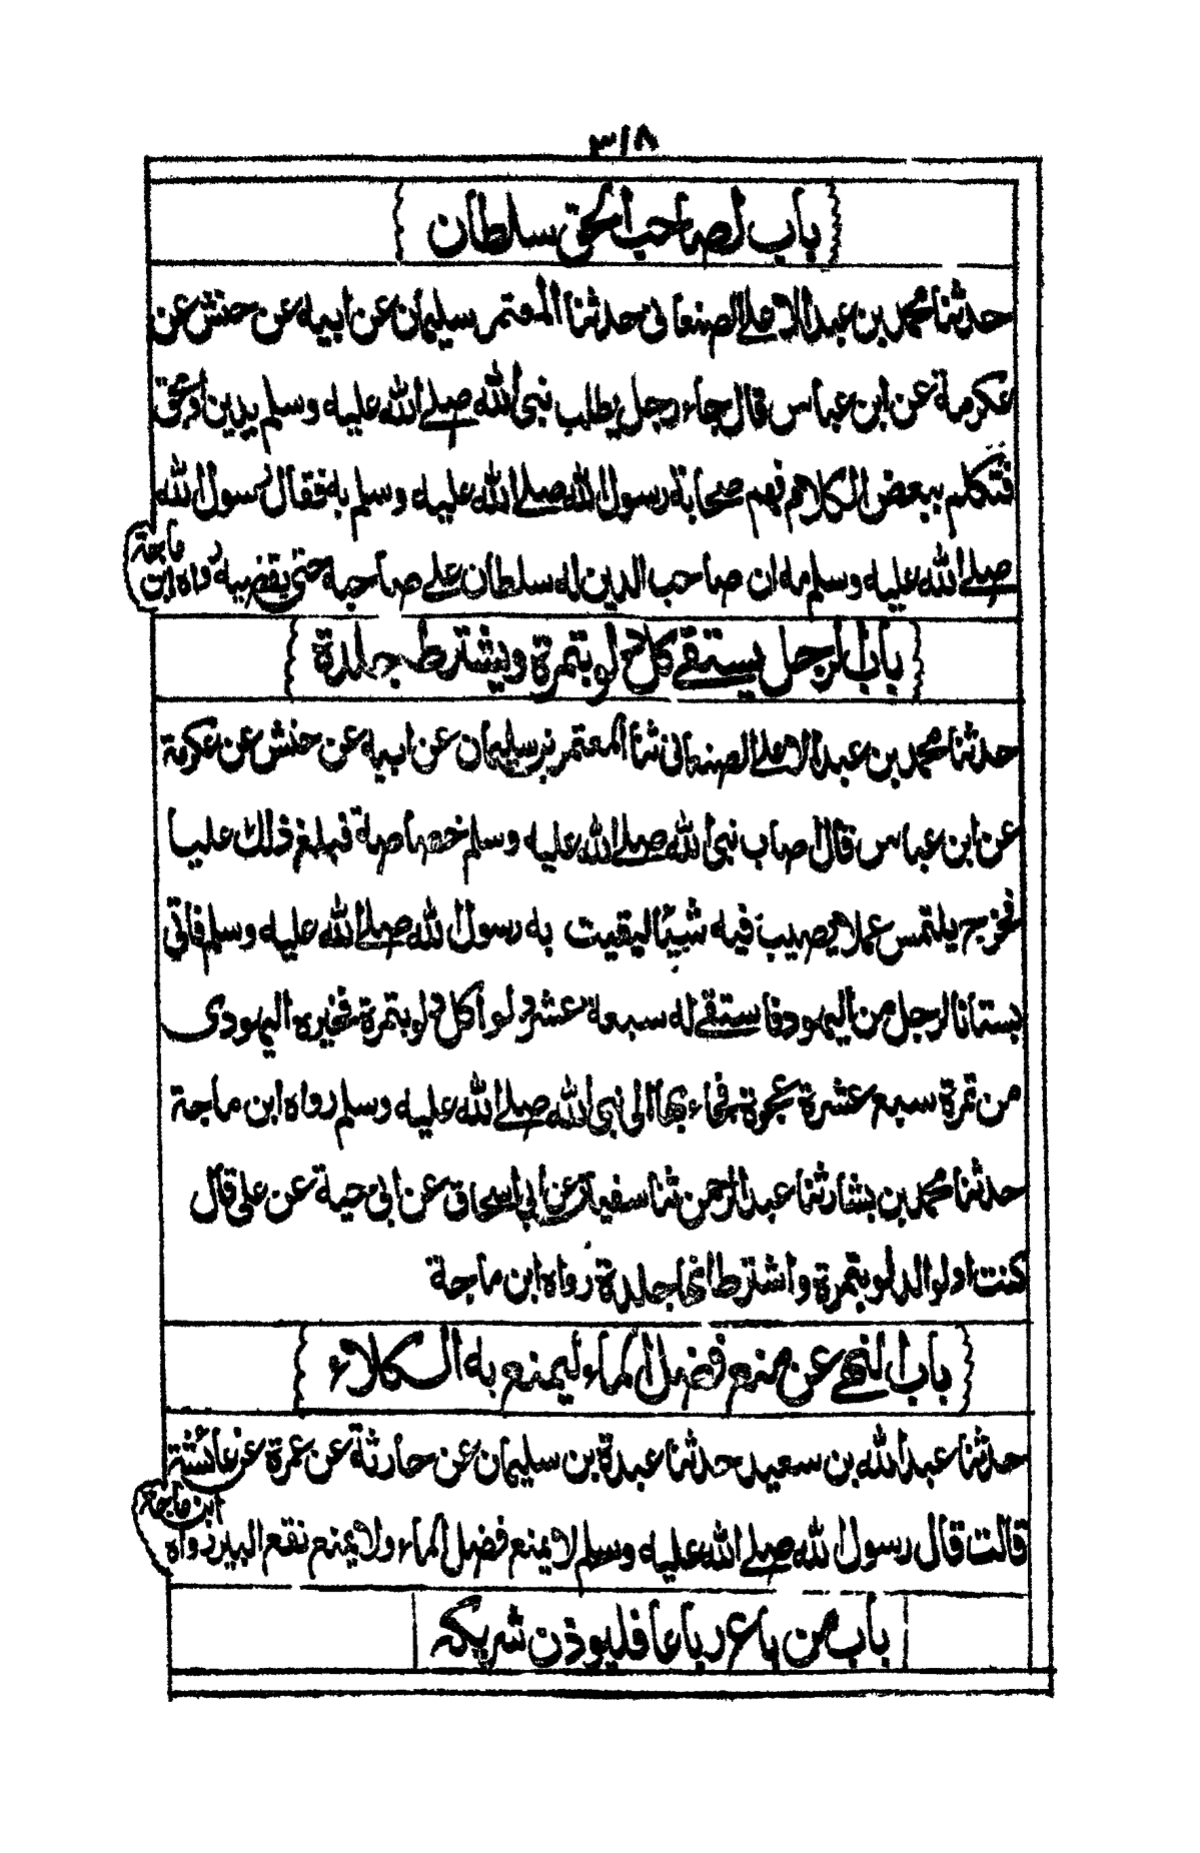 ٣١٨
باب لصاحب الحق سلطان
حدثنا محمد بن عبد الاعلے الصنعانی حدثنا المعتمر سلیمان عن ابیه عن حنش عن
عکرمة عن ابن عباس قال جاء رجل یطلب نبی الله صلے الله علیه وسلم بدین او بحق
فتکلم ببعض الکلام فهم صحابة رسول الله صلے الله علیه وسلم به فقال رسول الله
صلے الله علیه وسلم مه ان صاحب الدین له سلطان علے صاحبه حتی یقضیه رواه ابن ماجة
باب الرجل یستقے کل دلو بتمرة ویشترط جلدة
حدثنا محمد بن عبد الاعلے الصنعانی ثنا المعتمر بن سلیمان عن ابیه عن حنش عن عکرمة
عن ابن عباس قال اصاب نبی الله صلے الله علیه وسلم خصاصة فبلغ ذلك علیا
فخرج یلتمس عملا یصیب فیه شیئا لیقیت به رسول الله صلے الله علیه وسلم فاتی
بستانا لرجل من الیهود فاستقے له سبعة عشر دلوا کل دلو بتمرة فخیره الیهودی
من تمرة سبع عشرة عجوة فجاء بها الی نبی الله صلے الله علیه وسلم رواه ابن ماجة
حدثنا محمد بن بشار ثنا عبد الرحمن ثنا سفیان عن ابی اسحاق عن ابی حیة عن علی قال
کنت ادلو الدلو بتمرة واشترط انها جلدة رواه ابن ماجة
باب النهے عن منع فضل الماء لیمنع به الکلاء
حدثنا عبد الله بن سعید حدثنا عبدة بن سلیمان عن حارثة عن عمرة عن عائشة
قالت قال رسول الله صلے الله علیه وسلم لا یمنع فضل الماء ولا یمنع نقع البیر رواه ابن ماجة
باب من باع رباعا فلیوذن شریکه